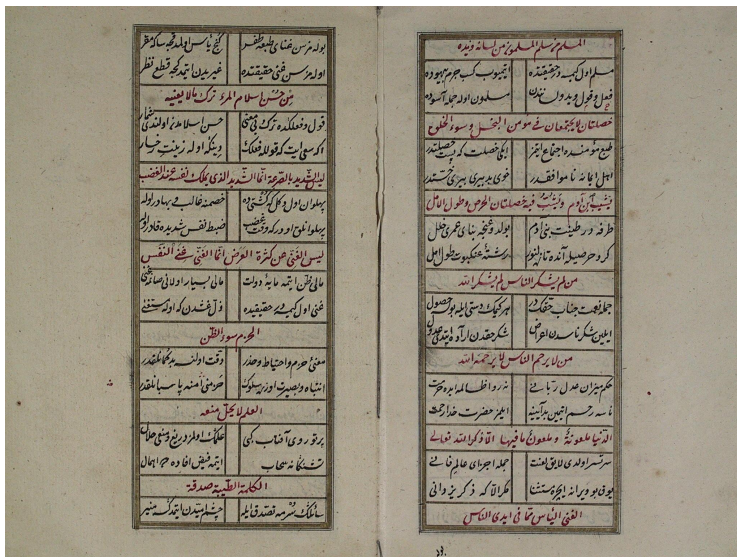 المسلم من سلم المسلمون من لسانه ويده
مسلم اول كيمسه در حقيقتده ايتميوب كسب جرم بيهوده
فعل و قول و يد و لسانندن مسلمون اوله جمله آسوده
خصلتان لا يجتمعان في مؤمن البخل وسوء الخلق
طبع مؤمنده اجتماع ايتمز ايكى خصلت كه پست خصلتدر
اهل ايمانه ناموافقدر خوى بد بيرى بيرى خستدر
يشيب ابن آدم ويشب فيه خصلتان الحرص وطول الامل
طرفه در طينت بنى آدم بولدوغنجه بناى عمرى خلل
رشتۀ عنكبوت طول امل
من لم يشكر الناس لم يشكر الله
جمله نعمت جناب حقكدر هر كيمك دستى ايله بولسه حصول
ايلين شكر ناسدن اعراض شكر حقدن
من لا يرحم الناس لا يرحمه الله
حكم ميزان عدل ربانى
ناسه رحم ايتمين ايلمز حضرت خدا رحمت
الدنيا ملعونة وملعون ما فيها الا ذكر الله تعالى
سرتسر اولدى لايق لعنت جمله اجزاى عالم فانى
بوقو ويرانه ايچره مستثنا
الغنى الياس مما فى ايدى الناس
بوله مز سن غناى طبعه ظفر كنج ياس اولمدقجه
اوله مز سن غنى حقيقتده غيريدن ايتمدكجه قطع نظر
من حسن اسلام المرء ترك ما لا يعنيه
قول و فعلكده ترك حسن اسلامدن اولندى شمار
دينكه اوله زينت
ليس الشديد بالصرعة انما الشديد الذى يملك نفسه عند الغضب
پهلوان اول دكل كه كشتى ده خصمنه غالب بهادر اوله
پهلوانلق اودر كه وقت غضب ضبط نفس شديده قادر اوله
ليس الغنى عن كثرة العرض انما الغنى غنى النفس
مالى ظن ايتمه مايۀ دولت مالى بسيار اولانى صانمه غنى
غنى اول كيمسه در حقيقتده
الحزم سوء الظن
معنئ حزم و احتياط و حذر دقت اولنسه بدكمانلقدر
انتباه و بصيرت اوزره سلوك
العلم لا يحل منعه
پرتو روى آفتاب كبى علمك اولمز دريغ و منعى حلال
تشنكانه سحاب ايتمه فيض افاده ده اهمال
الكلمة الطيبة صدقة
سائلك تصدق ايله